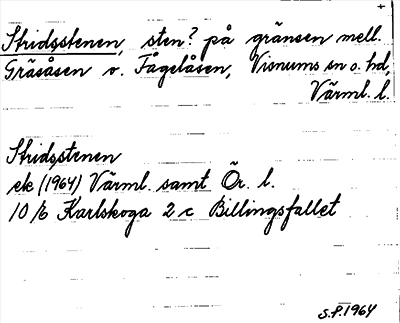 Stridsstenen, sten? på gränsen mell.
Gräsåsen o. Fågelåsen, Visnums sn o. hd,
Värml. l.
Stridsstenen
ek (1964) Värml. samt Ör. l.
10/6 Karlskoga 2 c Billingsfallet
S.P. 1964